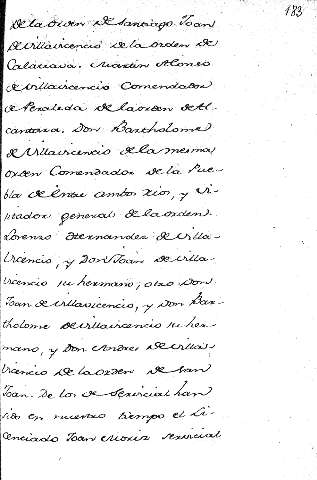 183
de la orden de Santiago. Joan
de Villavicencio de la orden de
Calatrava. Martin Alonso
de Villavicencio Comendador
de Peraleda de la orden de Al-
cantara. Don Bartholome
de Villavicencio de la mesma
orden Comendador de la Pue-
bla de entre ambos rios, y vi-
sitador general de la orden.
Lorenzo Hernandez de Villa-
vicencio, y Don Joan de Villa-
vicencio su hermano; otro Don
Joan de Villavicencio, y Don Bar-
tholome de Villavicencio su her-
mano, y Don Andres de Villa-
vicencio de la orden de San
Joan. De los de Sexircial han
sido en nuestro tiempo el Li-
cenciado Joan